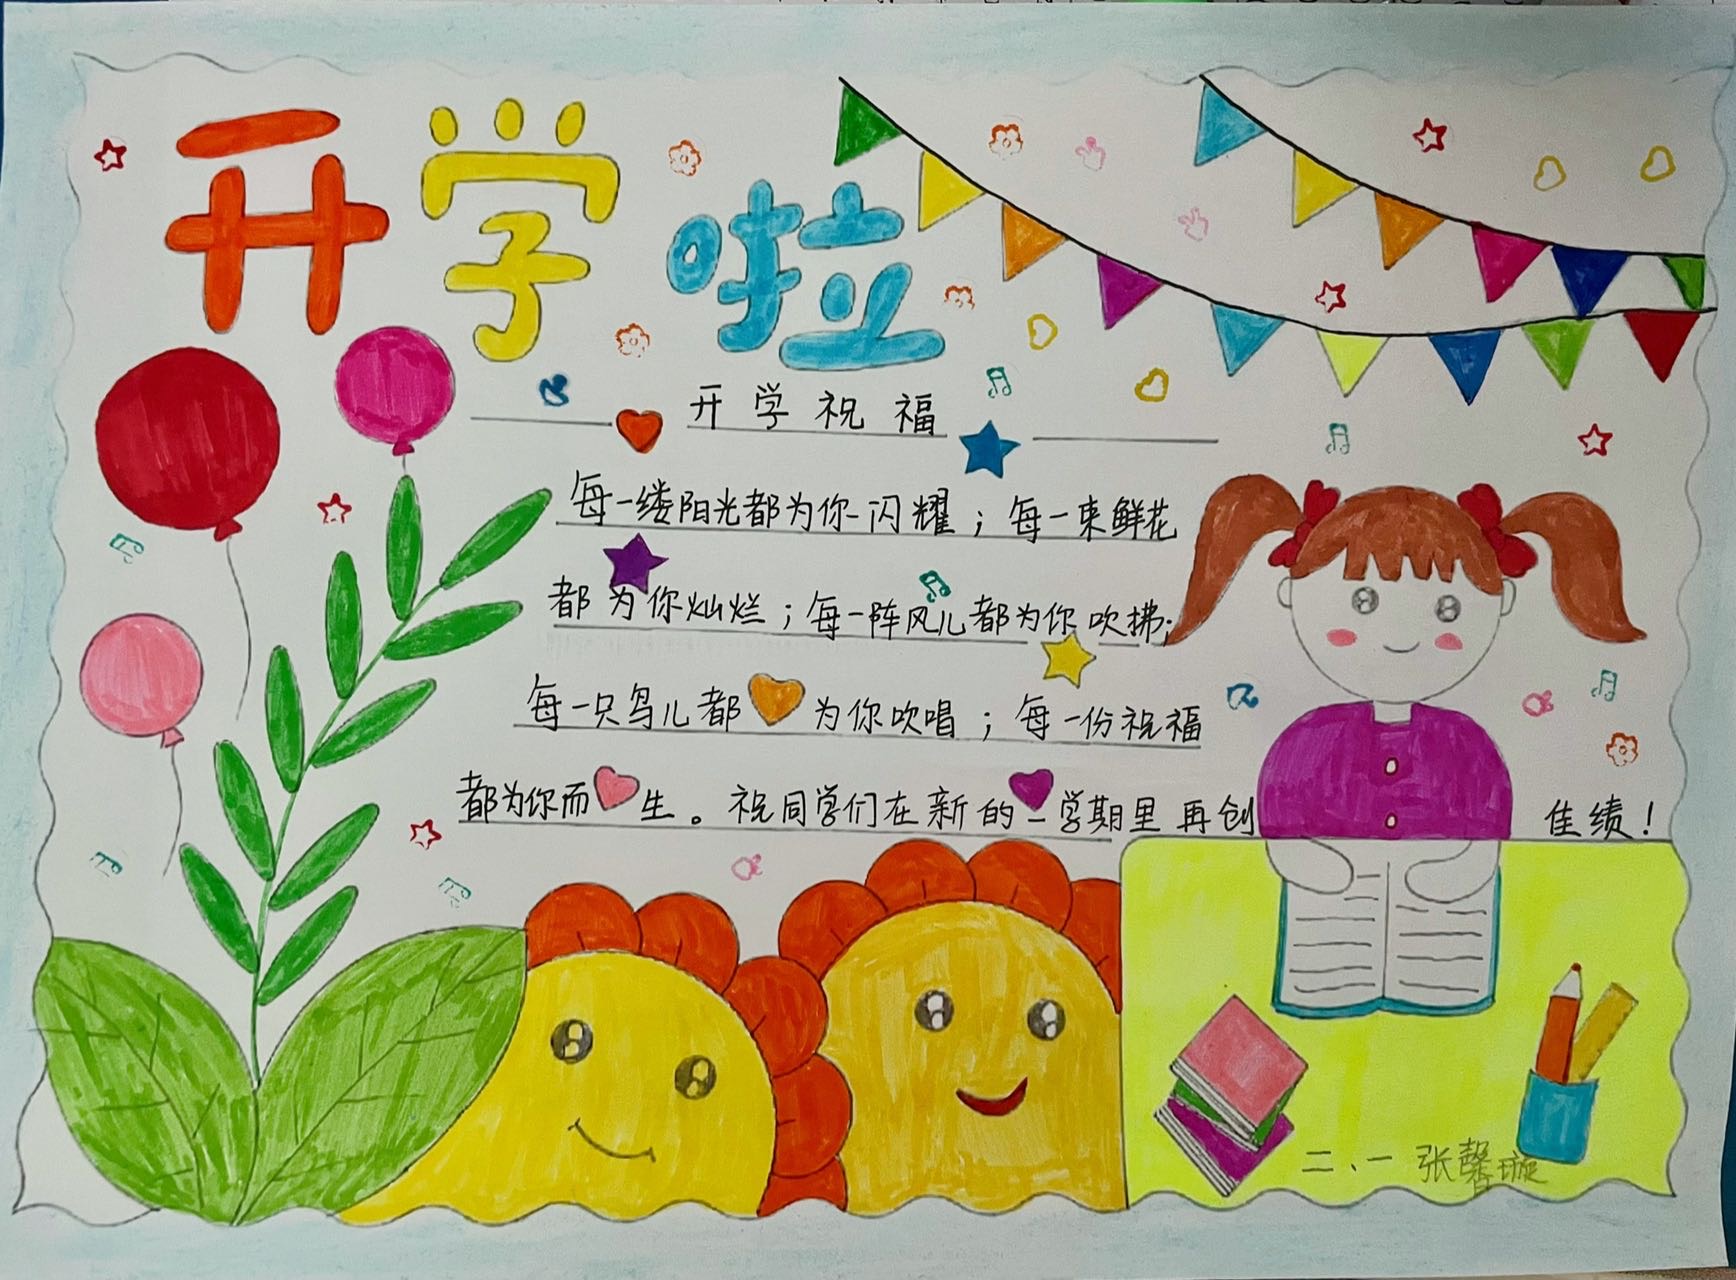 开学啦
开学祝福
每一缕阳光都为你闪耀；每一束鲜花
都为你灿烂；每一阵风儿都为你吹拂；
每一只鸟儿都为你吹唱；每一份祝福
都为你而生。祝同学们在新的一学期里再创佳绩！
二、一 张馨璇